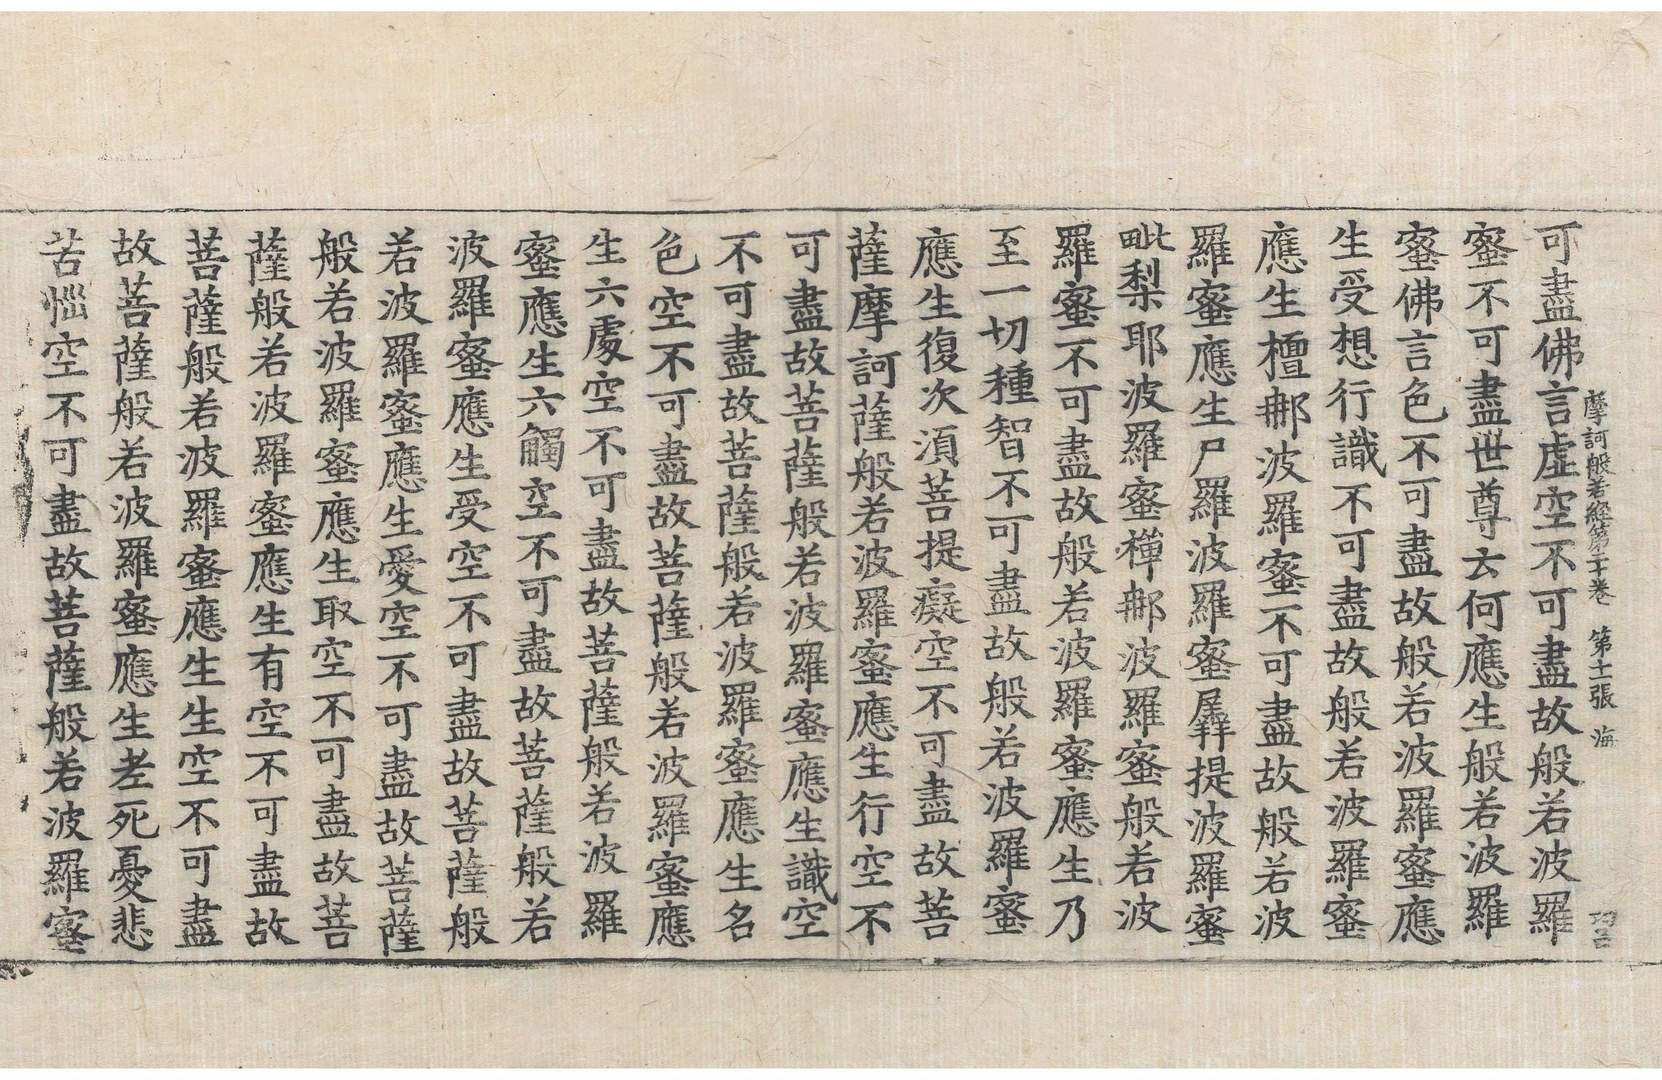 摩訶般若經第二十卷 第十一張 海
可盡佛言虛空不可盡故般若波羅
蜜不可盡世尊云何應生般若波羅
蜜佛言色不可盡故般若波羅蜜應
生受想行識不可盡故般若波羅蜜
應生檀那波羅蜜不可盡故般若波
羅蜜應生尸羅波羅蜜羼提波羅蜜
毗梨耶波羅蜜禪那波羅蜜般若波
羅蜜不可盡故般若波羅蜜應生乃
至一切種智不可盡故般若波羅蜜
應生復次湏菩提癡空不可盡故菩
薩摩訶薩般若波羅蜜應生行空不
可盡故菩薩般若波羅蜜應生識空
不可盡故菩薩般若波羅蜜應生名
色空不可盡故菩薩般若波羅蜜應
生六處空不可盡故菩薩般若波羅
蜜應生六觸空不可盡故菩薩般若
波羅蜜應生受空不可盡故菩薩般
若波羅蜜應生愛空不可盡故菩薩
般若波羅蜜應生取空不可盡故菩
薩般若波羅蜜應生有空不可盡故
菩薩般若波羅蜜應生生空不可盡
故菩薩般若波羅蜜應生老死憂悲
苦惱空不可盡故菩薩般若波羅蜜